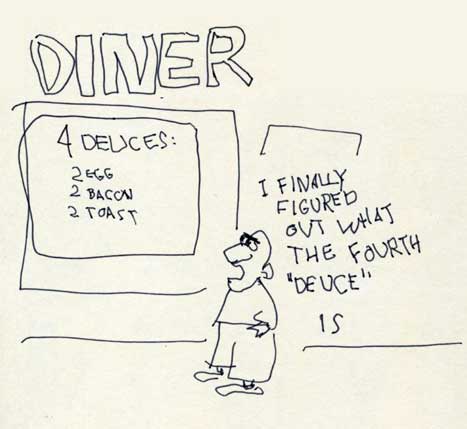 DINER
4 DEUCES:
2 EGG
2 BACON
2 TOAST
I FINALLY
FIGURED
OUT WHAT
THE FOURTH
"DEUCE"
IS